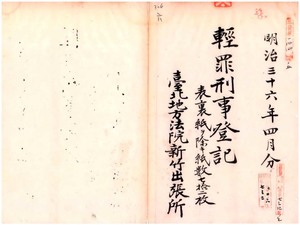 明治三十六年四月分
輕罪刑事登記
表裏紙ノ除キ紙數百拾二枚
臺北地方法院新竹出張所